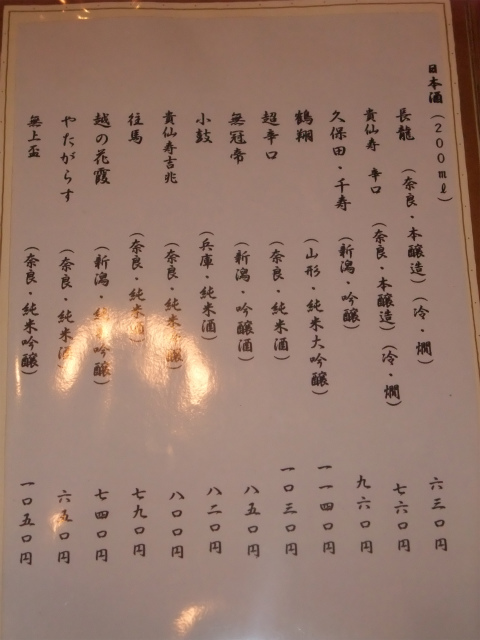 日本酒(200ml)
長龍 (奈良・本醸造)(冷・燗) 六三〇円
貴仙寿 辛口 (奈良・本醸造)(冷・燗) 七六〇円
久保田・千寿 (新潟・吟醸) 九六〇円
鶴翔 (山形・純米大吟醸) 一一四〇円
超辛口 (奈良・純米酒) 一〇三〇円
無冠帝 (新潟・吟醸酒) 八五〇円
小鼓 (兵庫・純米酒) 八二〇円
貴仙寿吉兆 (奈良・純米吟醸) 八〇〇円
往馬 (奈良・純米酒) 七九〇円
越の花霞 (新潟・純米吟醸) 七四〇円
やたがらす (奈良・純米酒) 六五〇円
無上盃 (奈良・純米吟醸) 一〇五〇円